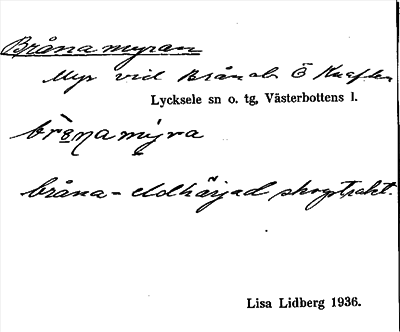 Brånamyran
Myr vid Brånab Ö Knaften
Lycksele sn o. tg, Västerbottens l.
bråna - eldhärjad skogstrakt.
Lisa Lidberg 1936.